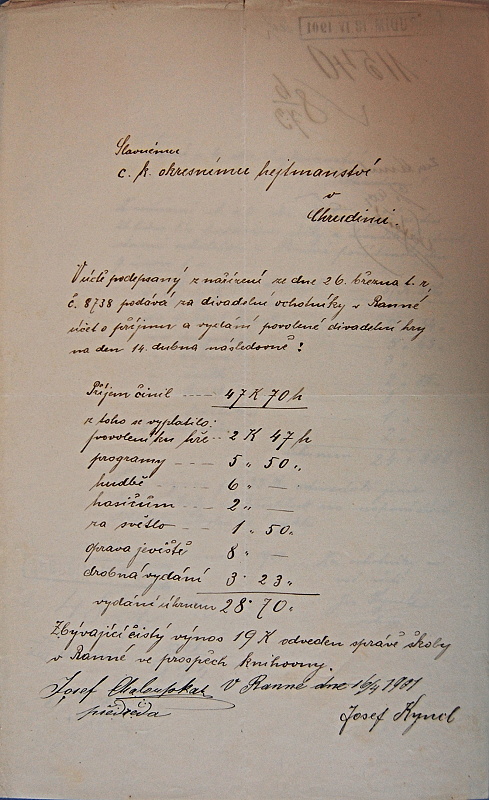 Slavnému
c. k. okresnímu hejtmanství
v
Chrudimi.
V úctě podepsaný z nařízení ze dne 26. března t. r.
č. 8738 podává za divadelní ochotníky v Ranné
účet o příjmu a vydání povolené divadelní hry
na den 14. dubna následovně:
Příjem činil ---- 47 K 70 h
z toho se vyplatilo:
povolení ku hře -- 2 K 47 h
programy --- 5 „ 50 „
hudbě --- 6 „ —
hasičům --- 2 „ —
za světlo --- 1 „ 50 „
oprava jeviště 8 „ —
drobná vydání 3 „ 23 „
vydání úhrnem 28 „ 70 „
Zbývající čistý výnos 19 K odveden správě školy
v Ranné ve prospěch knihovny.
Josef Chaloupkah V Ranné dne 16/4 1901
předseda
Josef Kyncl